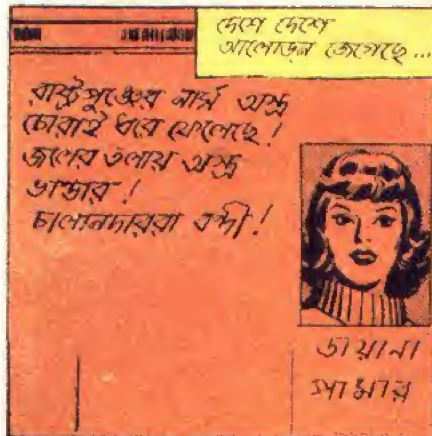 দেশে দেশে
আলোড়ন জেগেছে...
রাষ্ট্রপুঞ্জের নার্স অস্ত্র
চোরাই ধরে ফেলেছে!
জলের তলায় অস্ত্র
ভান্ডার!
চালানদাররা বন্দী!
ডায়ানা
পামার